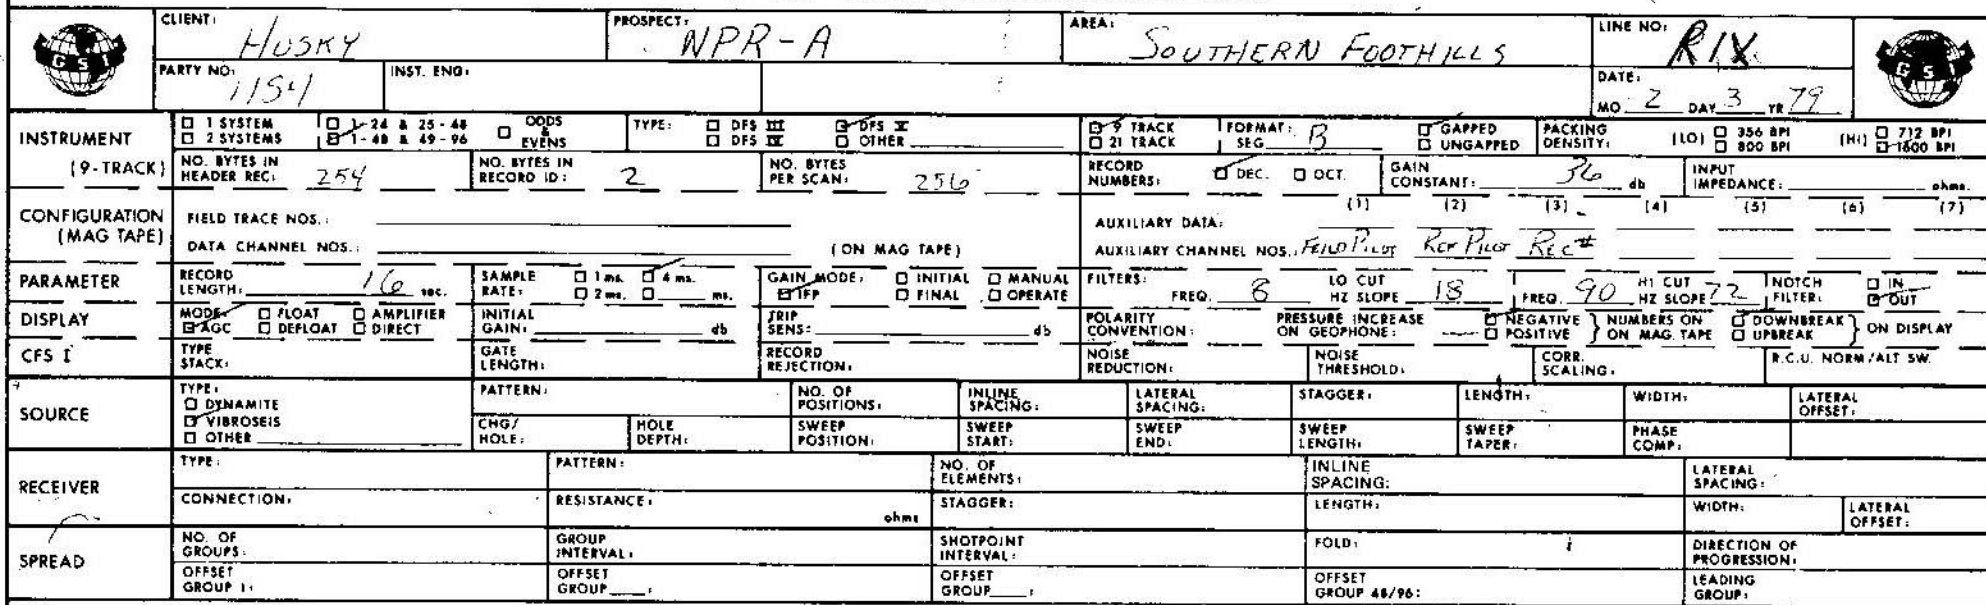 CLIENT: HUSKY PROSPECT: NPR-A AREA: SOUTHERN FOOTHILLS LINE NO: RIX
GSI GSI
PARTY NO: 1154 INST. ENG: DATE:
MO 2 DAY 3 YR 79
INSTRUMENT 1 SYSTEM 1-24 & 25-48 ODDS & EVENS TYPE: DFS III DFS V 9 TRACK FORMAT: GAPPED PACKING DENSITY: (LO) 356 BPI (HI) 712 BPI
2 SYSTEMS 1-48 & 49-96 DFS IV OTHER 21 TRACK SEG B UNGAPPED 800 BPI 1600 BPI
(9-TRACK) NO. BYTES IN HEADER REC: 254 NO. BYTES IN RECORD ID: 2 NO. BYTES PER SCAN: 256 RECORD NUMBERS: DEC. OCT. GAIN CONSTANT: 36 db INPUT IMPEDANCE: ohms.
CONFIGURATION FIELD TRACE NOS.: AUXILIARY DATA: (1) (2) (3) (4) (5) (6) (7)
(MAG TAPE) DATA CHANNEL NOS.: (ON MAG TAPE) AUXILIARY CHANNEL NOS.: FEILD PILOT REF PILOT REC#
PARAMETER RECORD LENGTH: 16 sec. SAMPLE RATE: 1 ms. 4 ms. 2 ms. ms. GAIN MODE: INITIAL MANUAL IFP FINAL OPERATE FILTERS: FREQ. 8 LO CUT HZ SLOPE 18 FREQ. 90 HI CUT HZ SLOPE 72 NOTCH FILTER: IN OUT
DISPLAY MODE: FLOAT AMPLIFIER AGC DEFLOAT DIRECT INITIAL GAIN: db TRIP SENS: db POLARITY CONVENTION: PRESSURE INCREASE ON GEOPHONE: NEGATIVE POSITIVE } NUMBERS ON MAG TAPE DOWNBREAK UPBREAK } ON DISPLAY
CFS I TYPE STACK: GATE LENGTH: RECORD REJECTION: NOISE REDUCTION: NOISE THRESHOLD: CORR. SCALING: R.C.U. NORM/ALT SW.
SOURCE TYPE: DYNAMITE VIBROSEIS OTHER PATTERN: NO. OF POSITIONS: INLINE SPACING: LATERAL SPACING: STAGGER: LENGTH: WIDTH: LATERAL OFFSET:
CHG/HOLE: HOLE DEPTH: SWEEP POSITION: SWEEP START: SWEEP END: SWEEP LENGTH: SWEEP TAPER: PHASE COMP:
RECEIVER TYPE: PATTERN: NO. OF ELEMENTS: INLINE SPACING: LATERAL SPACING:
CONNECTION: RESISTANCE: ohms STAGGER: LENGTH: WIDTH: LATERAL OFFSET:
SPREAD NO. OF GROUPS: GROUP INTERVAL: SHOTPOINT INTERVAL: FOLD: DIRECTION OF PROGRESSION:
OFFSET GROUP 1: OFFSET GROUP : OFFSET GROUP : OFFSET GROUP 48/96: LEADING GROUP: